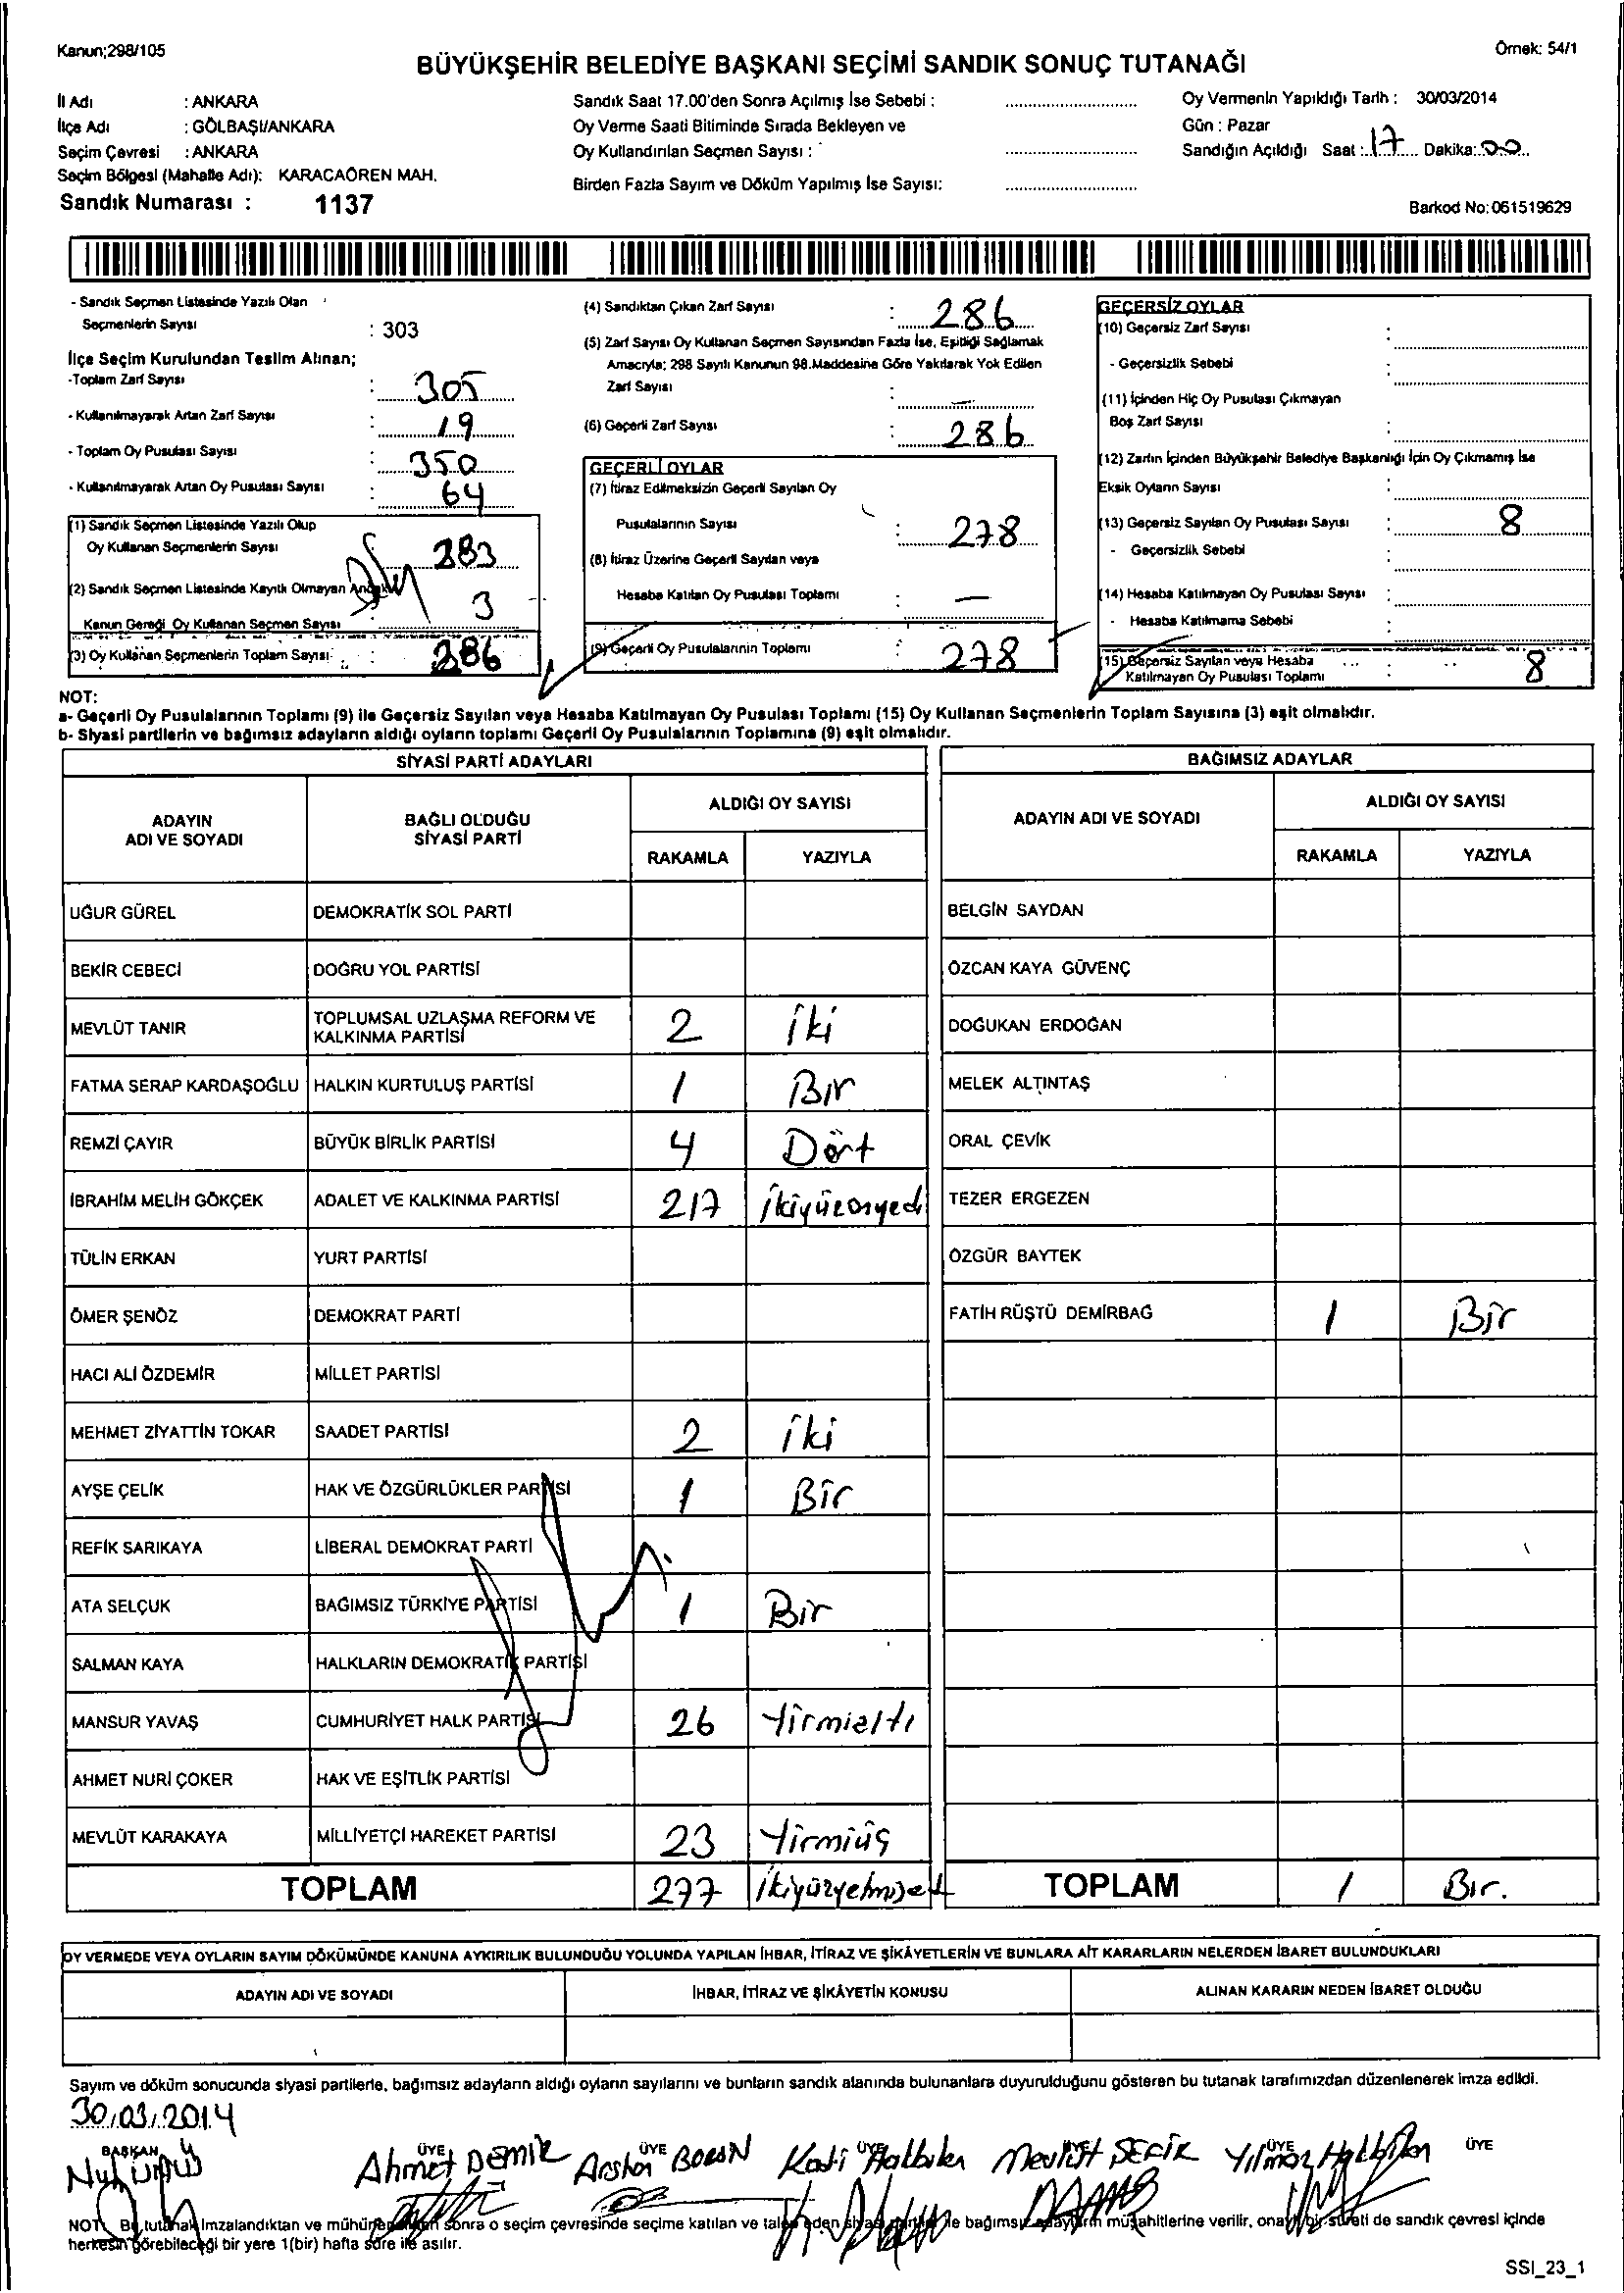 Kanun;298/105
Örnek: 54/1
BÜYÜKŞEHİR BELEDİYE BAŞKANI SEÇİMİ SANDIK SONUÇ TUTANAĞI
İl Adı : ANKARA
İlçe Adı : GÖLBAŞI/ANKARA
Seçim Çevresi : ANKARA
Seçim Bölgesi (Mahalle Adı): KARACAÖREN MAH.
Sandık Numarası : 1137
Sandık Saat 17.00'den Sonra Açılmış İse Sebebi :
Oy Verme Saati Bitiminde Sırada Bekleyen ve
Oy Kullandırılan Seçmen Sayısı :
Birden Fazla Sayım ve Döküm Yapılmış İse Sayısı:
Oy Vermenin Yapıldığı Tarih : 30/03/2014
Gün : Pazar
Sandığın Açıldığı Saat : 17 Dakika: 00
Barkod No: 061519629
- Sandık Seçmen Listesinde Yazılı Olan
Seçmenlerin Sayısı : 303
İlçe Seçim Kurulundan Teslim Alınan;
-Toplam Zarf Sayısı : 305
- Kullanılmayarak Artan Zarf Sayısı : 19
- Toplam Oy Pusulası Sayısı : 350
- Kullanılmayarak Artan Oy Pusulası Sayısı : 64
(1) Sandık Seçmen Listesinde Yazılı Olup
Oy Kullanan Seçmenlerin Sayısı 283
(2) Sandık Seçmen Listesinde Kayıtlı Olmayan Ancak
Kanun Gereği Oy Kullanan Seçmen Sayısı 3
(3) Oy Kullanan Seçmenlerin Toplam Sayısı : 286
(4) Sandıktan Çıkan Zarf Sayısı : 286
(5) Zarf Sayısı Oy Kullanan Seçmen Sayısından Fazla İse, Eşitliği Sağlamak
Amacıyla; 298 Sayılı Kanunun 98.Maddesine Göre Yakılarak Yok Edilen
Zarf Sayısı : —
(6) Geçerli Zarf Sayısı : 286
GEÇERLİ OYLAR
(7) İtiraz Edilmeksizin Geçerli Sayılan Oy
Pusulalarının Sayısı : 278
(8) İtiraz Üzerine Geçerli Sayılan veya
Hesaba Katılan Oy Pusulası Toplamı : —
(9) Geçerli Oy Pusulalarının Toplamı : 278
GEÇERSİZ OYLAR
(10) Geçersiz Zarf Sayısı :
- Geçersizlik Sebebi :
(11) İçinden Hiç Oy Pusulası Çıkmayan
Boş Zarf Sayısı :
(12) Zarfın İçinden Büyükşehir Belediye Başkanlığı İçin Oy Çıkmamış İse
Eksik Oyların Sayısı :
(13) Geçersiz Sayılan Oy Pusulası Sayısı : 8
- Geçersizlik Sebebi :
(14) Hesaba Katılmayan Oy Pusulası Sayısı :
- Hesaba Katılmama Sebebi :
(15) Geçersiz Sayılan veya Hesaba
Katılmayan Oy Pusulası Toplamı : 8
NOT:
a- Geçerli Oy Pusulalarının Toplamı (9) ile Geçersiz Sayılan veya Hesaba Katılmayan Oy Pusulası Toplamı (15) Oy Kullanan Seçmenlerin Toplam Sayısına (3) eşit olmalıdır.
b- Siyasi partilerin ve bağımsız adayların aldığı oyların toplamı Geçerli Oy Pusulalarının Toplamına (9) eşit olmalıdır.
SİYASİ PARTİ ADAYLARI
ADAYIN ADI VE SOYADI BAĞLI OLDUĞU SİYASİ PARTİ ALDIĞI OY SAYISI
RAKAMLA YAZIYLA
UĞUR GÜREL DEMOKRATİK SOL PARTİ
BEKİR CEBECİ DOĞRU YOL PARTİSİ
MEVLÜT TANIR TOPLUMSAL UZLAŞMA REFORM VE KALKINMA PARTİSİ 2 iki
FATMA SERAP KARDAŞOĞLU HALKIN KURTULUŞ PARTİSİ 1 Bir
REMZİ ÇAYIR BÜYÜK BİRLİK PARTİSİ 4 Dört
İBRAHİM MELİH GÖKÇEK ADALET VE KALKINMA PARTİSİ 217 ikiyüzonyedi
TÜLİN ERKAN YURT PARTİSİ
ÖMER ŞENÖZ DEMOKRAT PARTİ
HACI ALİ ÖZDEMİR MİLLET PARTİSİ
MEHMET ZİYATTİN TOKAR SAADET PARTİSİ 2 iki
AYŞE ÇELİK HAK VE ÖZGÜRLÜKLER PARTİSİ 1 Bir
REFİK SARIKAYA LİBERAL DEMOKRAT PARTİ
ATA SELÇUK BAĞIMSIZ TÜRKİYE PARTİSİ 1 Bir
SALMAN KAYA HALKLARIN DEMOKRATİK PARTİSİ
MANSUR YAVAŞ CUMHURİYET HALK PARTİSİ 26 Yirmialtı
AHMET NURİ ÇOKER HAK VE EŞİTLİK PARTİSİ
MEVLÜT KARAKAYA MİLLİYETÇİ HAREKET PARTİSİ 23 Yirmiüç
TOPLAM 277
BAĞIMSIZ ADAYLAR
ADAYIN ADI VE SOYADI ALDIĞI OY SAYISI
RAKAMLA YAZIYLA
BELGİN SAYDAN
ÖZCAN KAYA GÜVENÇ
DOĞUKAN ERDOĞAN
MELEK ALTINTAŞ
ORAL ÇEVİK
TEZER ERGEZEN
ÖZGÜR BAYTEK
FATİH RÜŞTÜ DEMİRBAĞ 1 Bir
TOPLAM 1 Bir.
OY VERMEDE VEYA OYLARIN SAYIM DÖKÜMÜNDE KANUNA AYKIRILIK BULUNDUĞU YOLUNDA YAPILAN İHBAR, İTİRAZ VE ŞİKÂYETLERİN VE BUNLARA AİT KARARLARIN NELERDEN İBARET BULUNDUKLARI
ADAYIN ADI VE SOYADI İHBAR, İTİRAZ VE ŞİKÂYETİN KONUSU ALINAN KARARIN NEDEN İBARET OLDUĞU
Sayım ve döküm sonucunda siyasi partilerle, bağımsız adayların aldığı oyların sayılarını ve bunların sandık alanında bulunanlara duyurulduğunu gösteren bu tutanak tarafımızdan düzenlenerek imza edildi.
30.03.2014
BAŞKAN ÜYE ÜYE ÜYE ÜYE ÜYE ÜYE
Ahmet Demir Mevlüt Yılmaz
NOT: Bu tutanak imzalandıktan ve mühürlendikten sonra o seçim çevresinde seçime katılan ve talep eden siyasi partiler ile bağımsız adayların müşahitlerine verilir, onaylı bir sureti de sandık çevresi içinde
herkesin görebileceği bir yere 1(bir) hafta süre ile asılır.
SSI_23_1